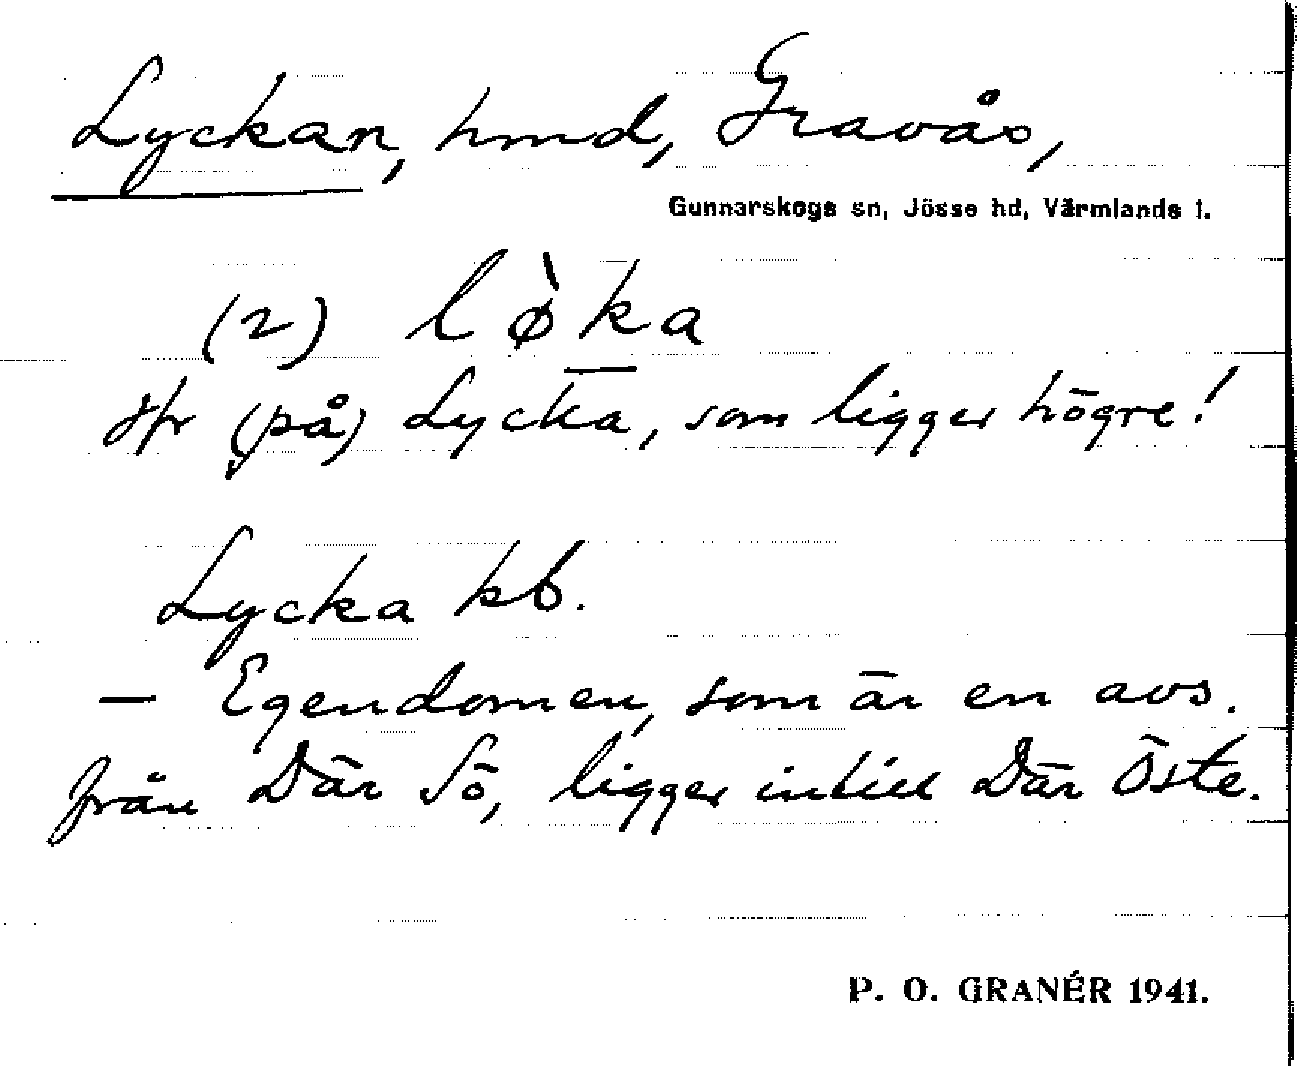 Lyckan, hmd, Gravås,
Gunnarskogs sn, Jösse hd, Värmlands l.
(2) lø̀ka
(på) Lycka, som ligger högre!
Lycka kb.
— Egendomen, som är en avs.
från Där Sö, ligger intill Där Öste.
P. O. GRANÉR 1941.